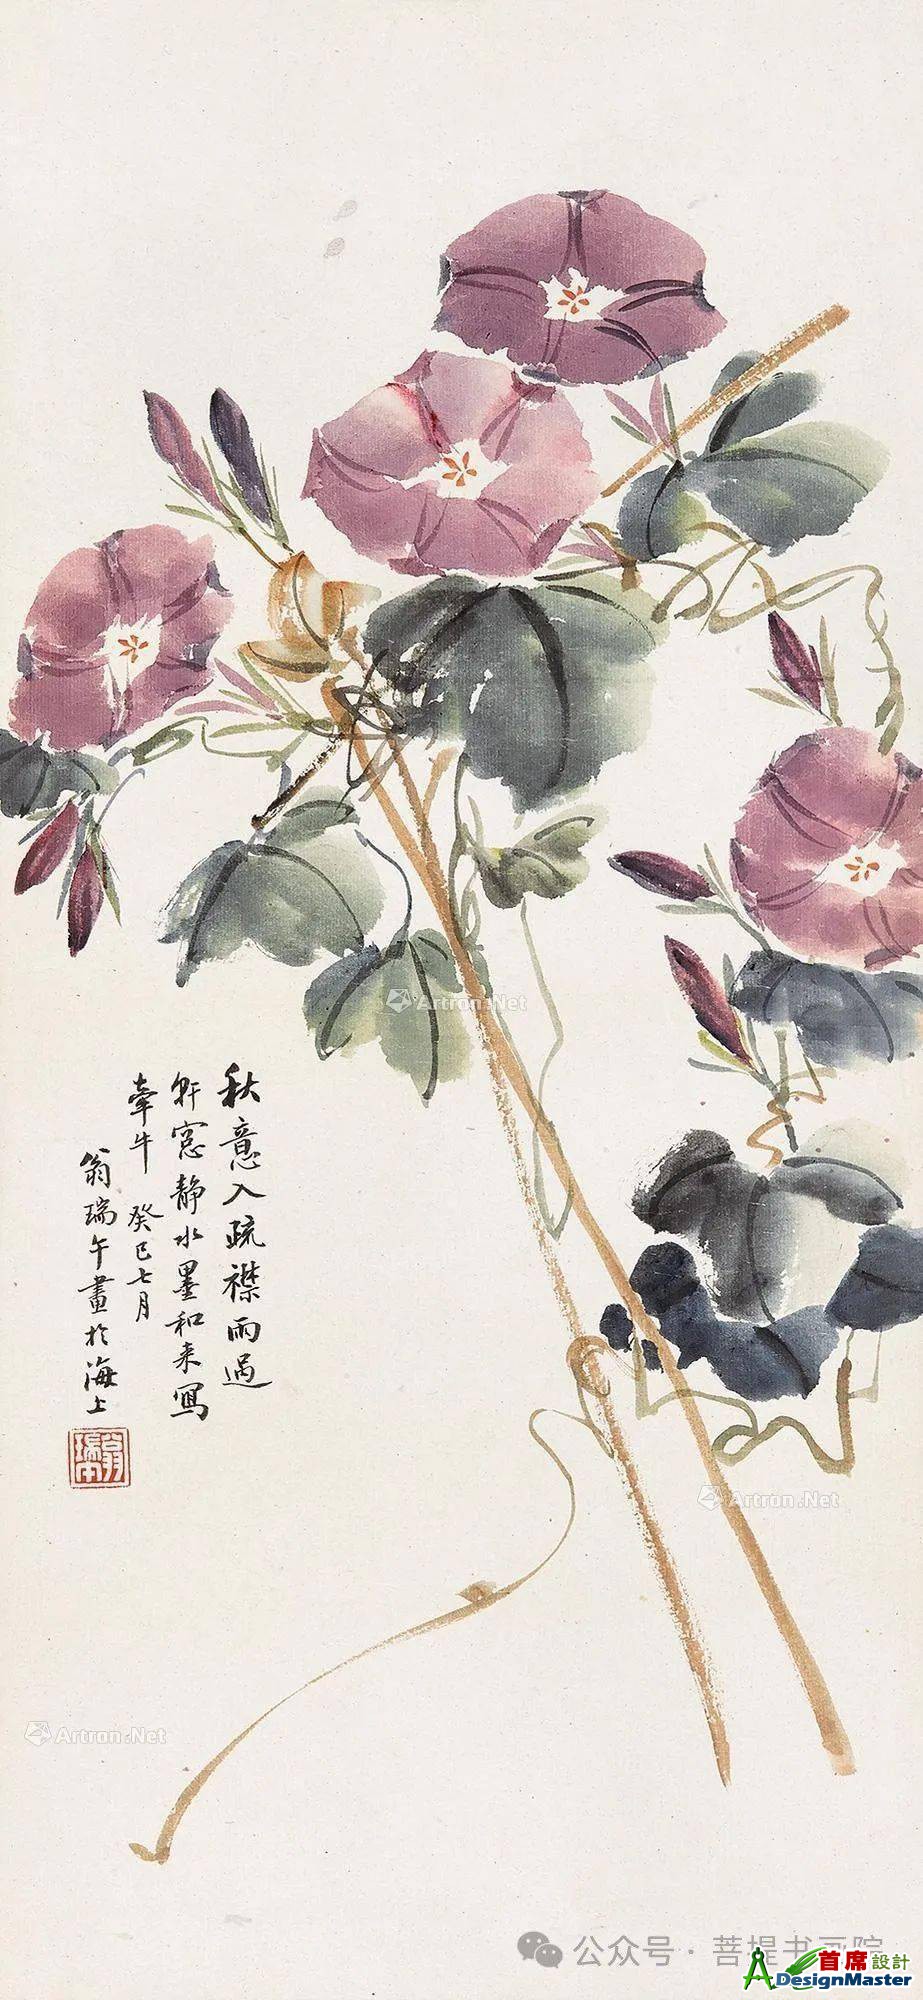 秋意入疏襟雨過
軒窓静水墨和来寫
牽牛 癸巳七月
翁瑞午畫於海上
翁瑞午
Artron.Net
Artron.Net
Artron.Net
公众号·菩提书画院
首席設計
ADesignMaster